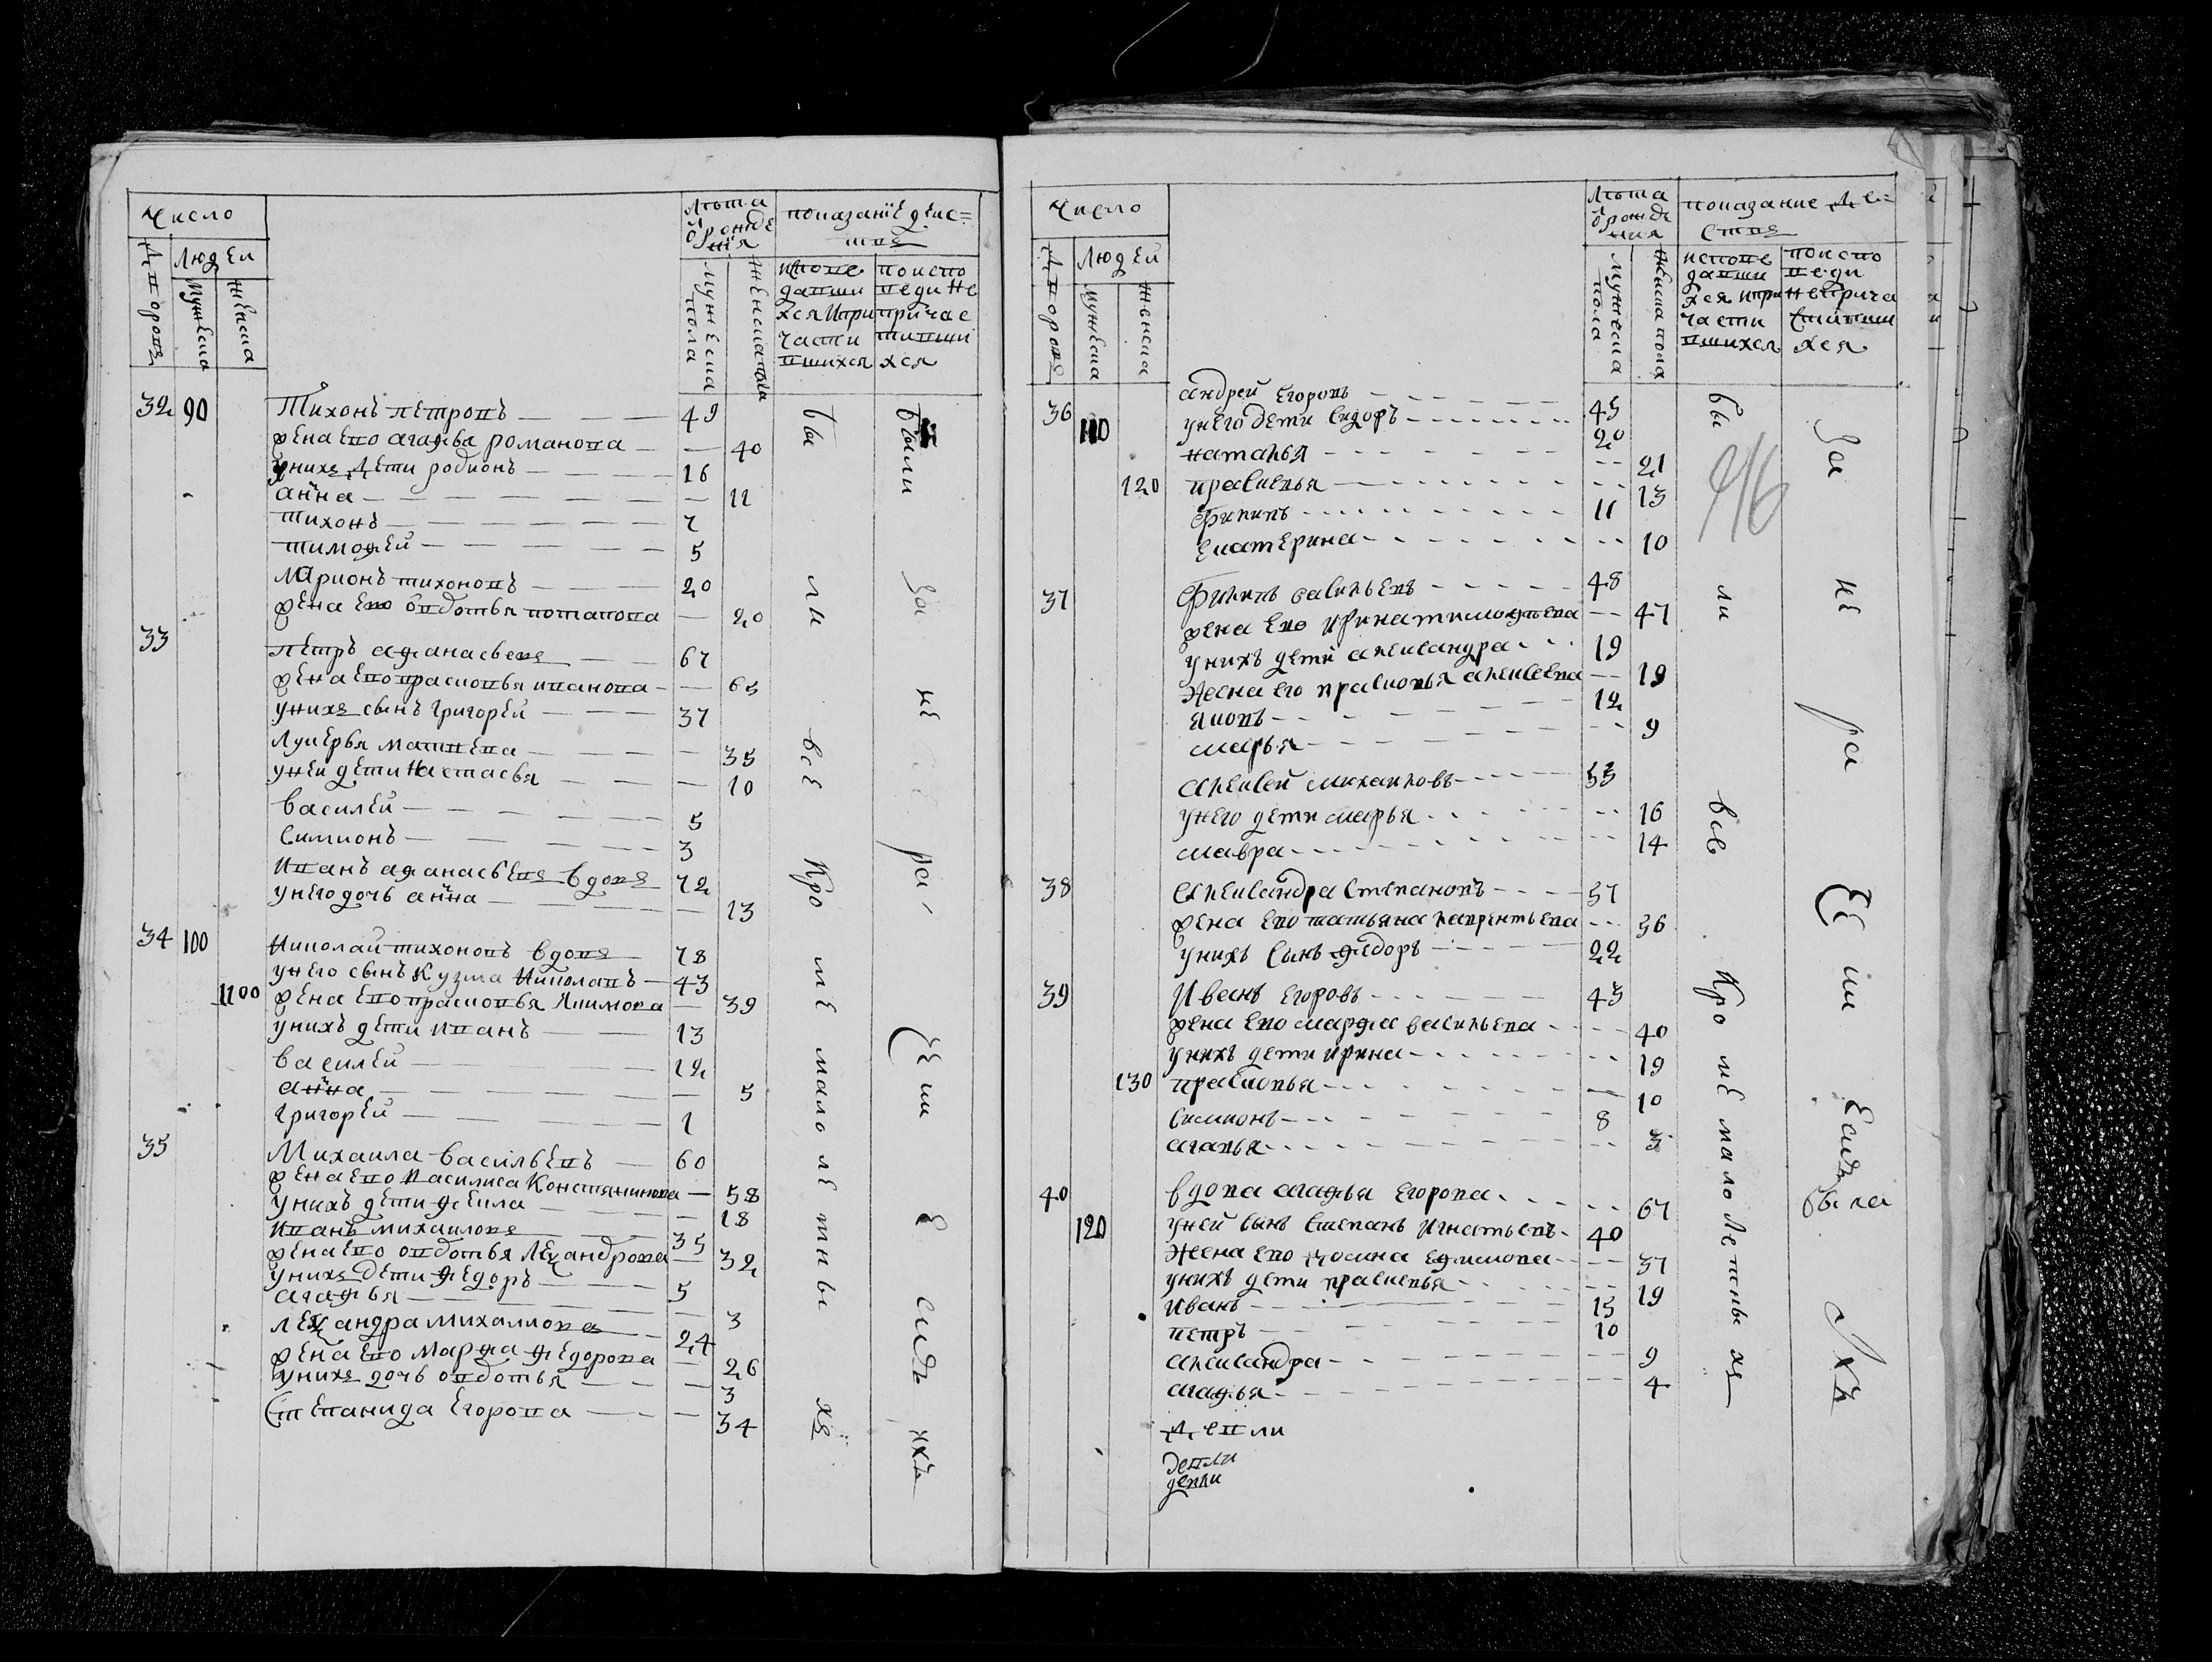 Число
Дворовъ
Людей
Мужеска
Женска
Лѣта ѿ рождения
Мужеска пола
Женска пола
показание дѣйствъ
исповедавшихся и причастившихся
по исповеди не причастившихся
32 90 Тихонъ петровъ — 49
жена ево агафья романова — 40
у нихъ дети родионъ — 16
анна — 11
тихонъ — 7
тимофеи — 5
ларионъ тихоновъ — 20
жена ево овдотья потапова — 20
33
петръ афанасьевъ — 67
жена ево прасковья иванова — 65
у нихъ сынъ григореи — 37
лукерья матвеева — 35
у неи дети настасья — 10
василеи — 5
симионъ — 3
иванъ афанасьевъ вдовъ 72
у него дочь анна — 13
34 100 николаи тихоновъ вдовъ 78
у него сынъ кузма николаевъ — 43
1100 жена ево прасковья якимова — 39
у нихъ дети иванъ — 13
василеи — 12
анна — 5
григореи — 1
35 Михаила васильевъ — 60
жена ево василиса констянтинова — 58
у нихъ дети фекла — 18
иванъ михаиловъ — 35
жена ево овдотья леѯандрова — 32
у нихъ дети федоръ — 5
агафья — 3
леѯандра михаиловъ — 24
жена ево марфа федорова — 26
у нихъ дочь овдотья — 3
степанида егорова — 34
были все кроме малолетныхъ
были за нераꙁсеѯшиеся ихъ
Число
Дворовъ
Людей
Мужеска
Женска
Лѣта ѿ рождения
Мужеска пола
Женска пола
показание действъ
исповедавшихся и причастившихся
по исповеди не причастившихся
андрей егоровъ — 45
36 110 у него дети сидоръ — 20
наталья — 21
120 прасковья — 13
филипъ — 11
екатерина — 10
37 филипъ васильевъ — 48
жена ево ирина тимофеева — 47
у нихъ дети александра — 19
жена его прасковья алексеева — 19
яковъ — 12
марья — 9
алексей михаиловъ — 53
у него дети марья — 16
мавра — 14
38 александра степановъ — 57
жена ево татьяна лаврентьева — 56
у нихъ сынъ федоръ — 22
39 иванъ егоровъ — 43
жена ево марфа васильева — 40
у нихъ дети ирина — 19
130 прасковья — 10
симионъ — 8
агапья — 3
40 вдова агафья егорова — 67
120 у ней сынъ степанъ игнатьевъ — 40
жена ево 37
у нихъ дети прасковья — 19
иванъ — 15
петръ — 10
александра — 9
агафья — 4
были все кроме малолетныхъ
416